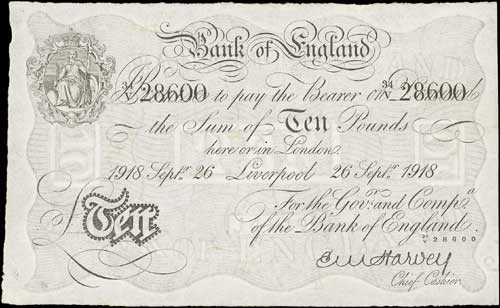 Bank of England
34/N 28600 to pay the Bearer on 34/N 28600
the Sum of Ten Pounds
here or in London
1918 Septr. 26 Liverpool 26 Septr. 1918
For the Govr. and Compa.
of the Bank of England.
28600
Ten
E M Harvey
Chief Cashier.